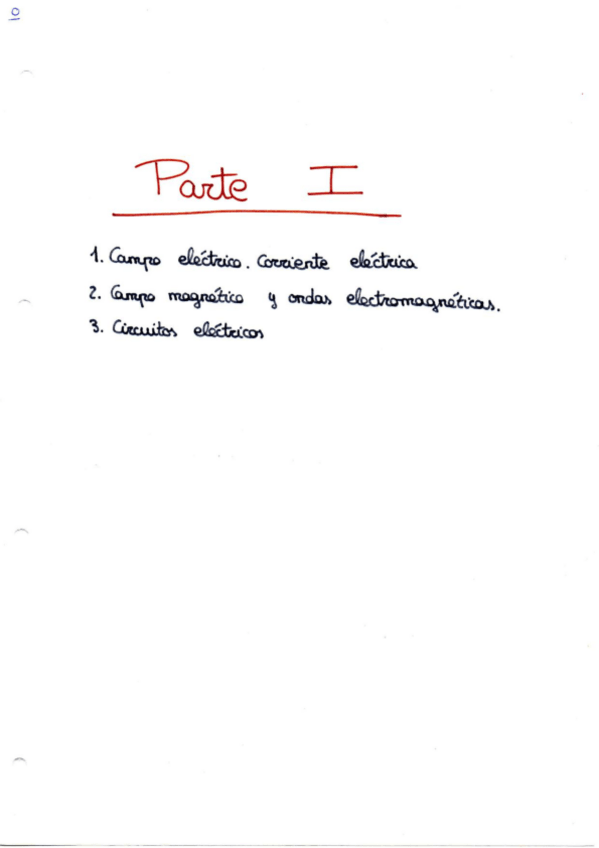 0
Parte I
1. Campo eléctrico. Corriente eléctrica
2. Campo magnético y ondas electromagnéticas.
3. Circuitos eléctricos